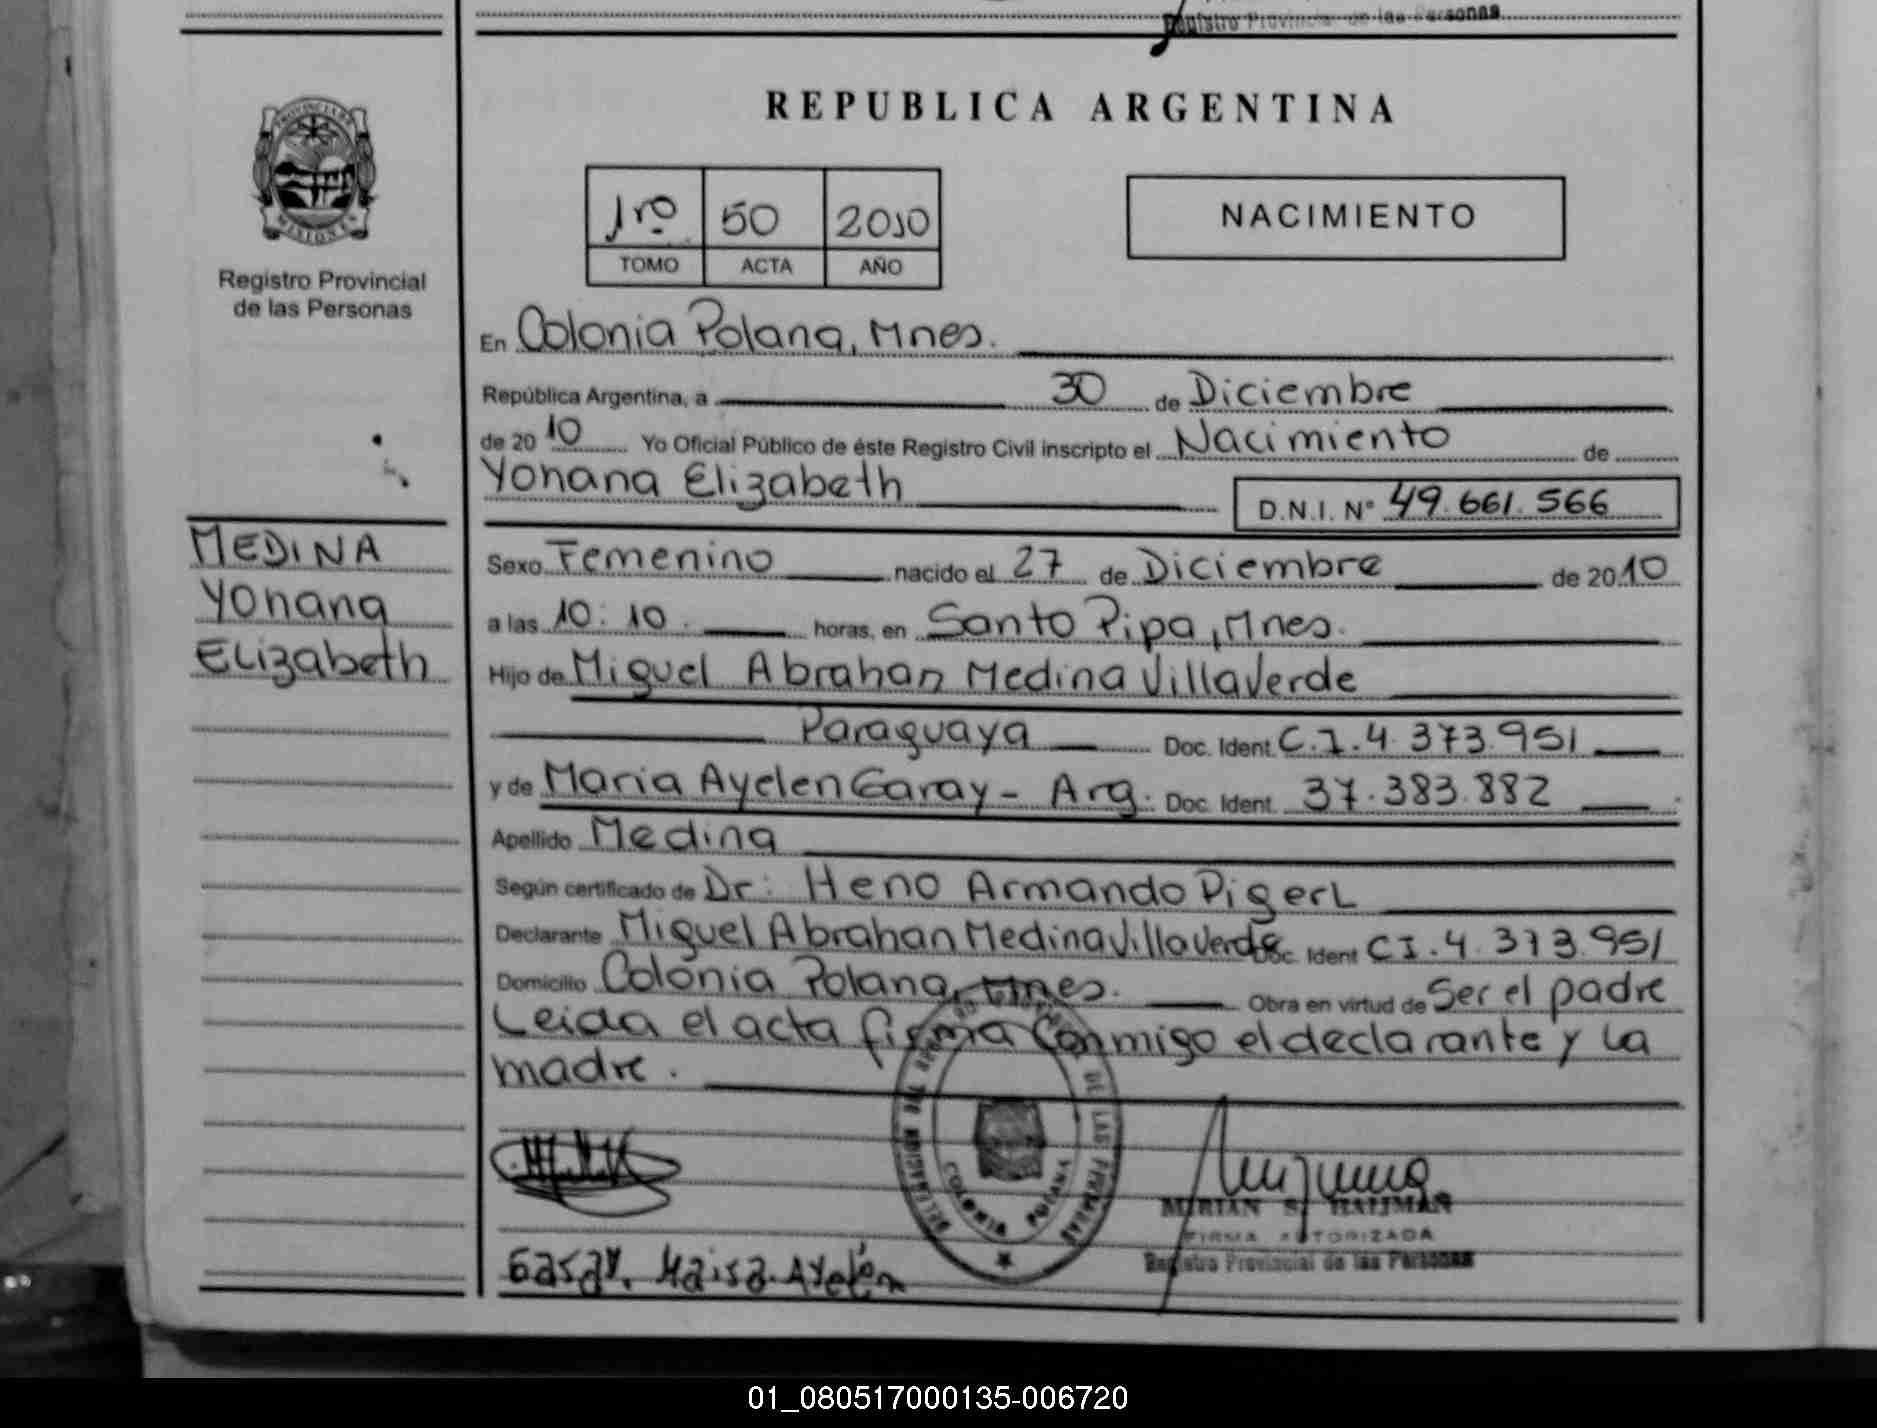 Registro Provincial de las Personas
REPUBLICA ARGENTINA
PROVINCIA DE
MISIONES
Registro Provincial
de las Personas
1ro 50 2010
TOMO ACTA AÑO
NACIMIENTO
En Colonia Polana, Mnes.
República Argentina, a 30 de Diciembre
de 2010 Yo Oficial Público de éste Registro Civil inscripto el Nacimiento de
Yohana Elizabeth
D.N.I. Nº 49.661.566
MEDINA
Yohana
Elizabeth
Sexo Femenino nacido el 27 de Diciembre de 2010
a las 10:10. horas, en Santo Pipa, Mnes.
Hijo de Miguel Abrahan Medina Villaverde
Paraguaya Doc. Ident. C.I. 4.373.951
y de Maria Ayelen Garay - Arg. Doc. Ident. 37.383.882
Apellido Medina
Según certificado de Dr: Heno Armando Pigerl
Declarante Miguel Abrahan Medina Villaverde Doc. Ident CI. 4.373.951
Domicilio Colonia Polana, Mnes. Obra en virtud de Ser el padre
Leida el acta firma conmigo el declarante y la
madre.
DE LAS PERSONAS
COLONIA POLANA
MIRIAN S. HALIMAN
FIRMA AUTORIZADA
Registro Provincial de las Personas
Garay, Maria Ayelén
01_080517000135-006720